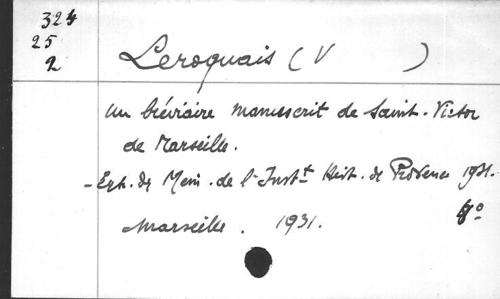 324
25
2
Leroquais (V )
un bréviaire manuscrit de Saint-Victor
de Marseille.
- Ext. de Mém. de l'Instt Hist. de Provence 1931.
Marseille. 1931. 8°